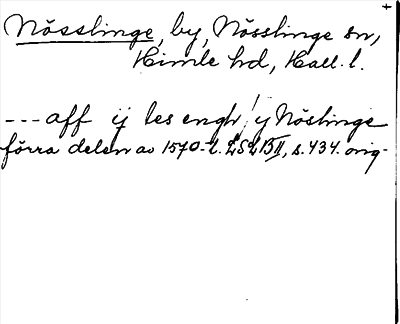 Nösslinge, by, Nösslinge sn,
Himle hd, Hall. l.
--- aff ij les engh / y Nöslinge
förra delen av 1570-t. s. 434. orig-